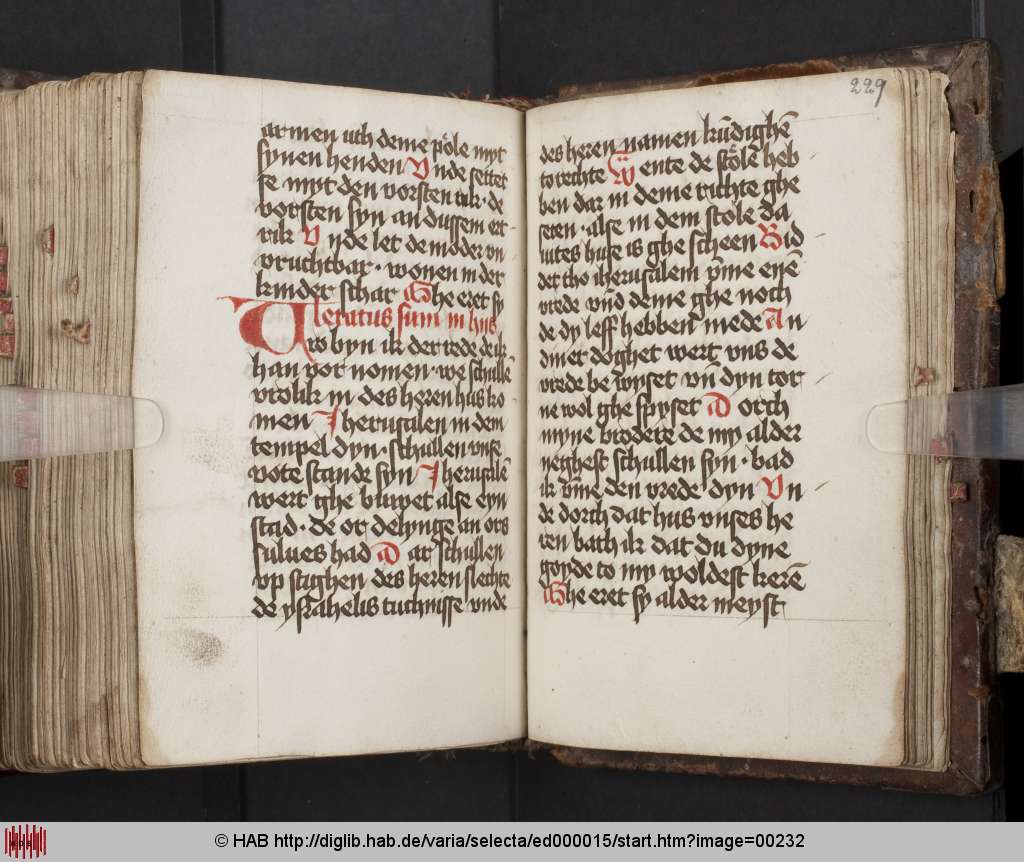 armen uth deme pole myt
synen henden Unde settet
se myt den vorsten rik · de
vorsten syn an dussem ert
rik Unde let de moder vn
vruchtbar · wonen in der
kinder schar Ghe eret sy
Letatus sum in hus
wo byn ik der rede de ik
han vor nomen · we schullē
vrolik in des heren hus ko
men Iherusalen in dem
tempel dyn · schullen unse
vote stande syn Iherusalē
wert ghe buwet alse eyn
stad · de or delynge an ors
sulues had Dar schullen
vp stighen des heren slechte
de ysrahelis tuchnisse vnde
229
des heren namen kūdighē
to rechte Wente de stolē heb
ben dar in deme richte ghe
seten · alse in dem stole da
uites huse is ghe scheen Bid
det tho iherusalem vm̄e enē
vrede vn̄d deme ghe noch
de dy leff hebben mede An
diner doghet wert vns de
vrede be wyset vn̄ dyn tor
ne wol ghe spyset Dorch
myne brodere de my alder
neghest schullen syn · bad
ik vm̄e den vrede dyn Vn
de dorch dat hus vnses he
ren bath ik dat du dyne
goyde to my woldest kerē
Ghe eret sy alder meyst
© HAB http://diglib.hab.de/varia/selecta/ed000015/start.htm?image=00232